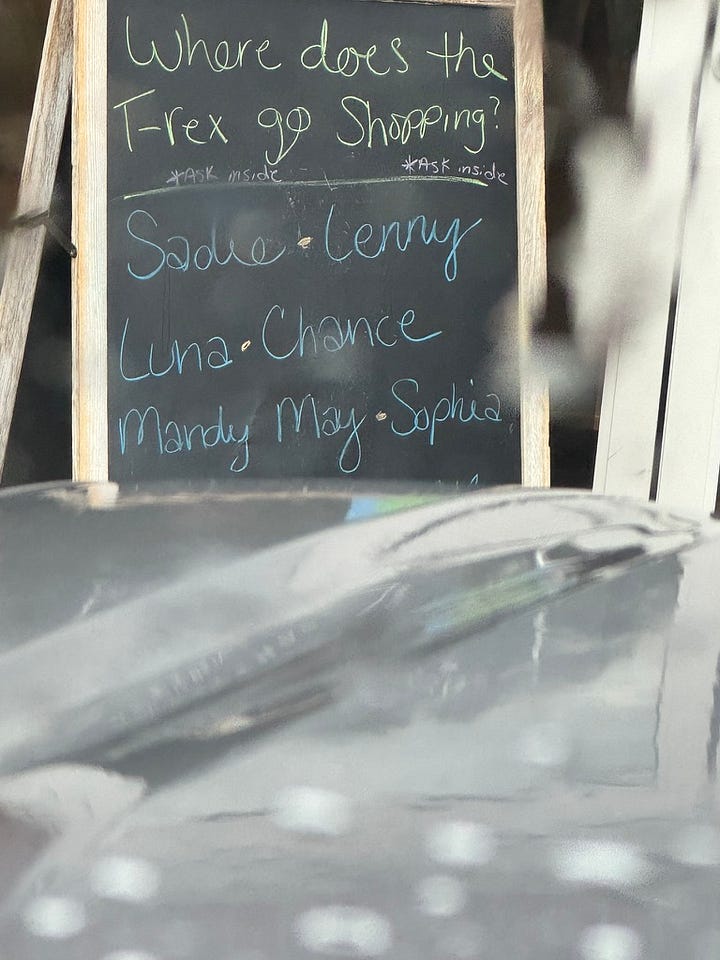 Where does the
T-rex go Shopping?
*Ask inside *Ask inside
Sadie • Lenny
Luna • Chance
Mandy May • Sophia